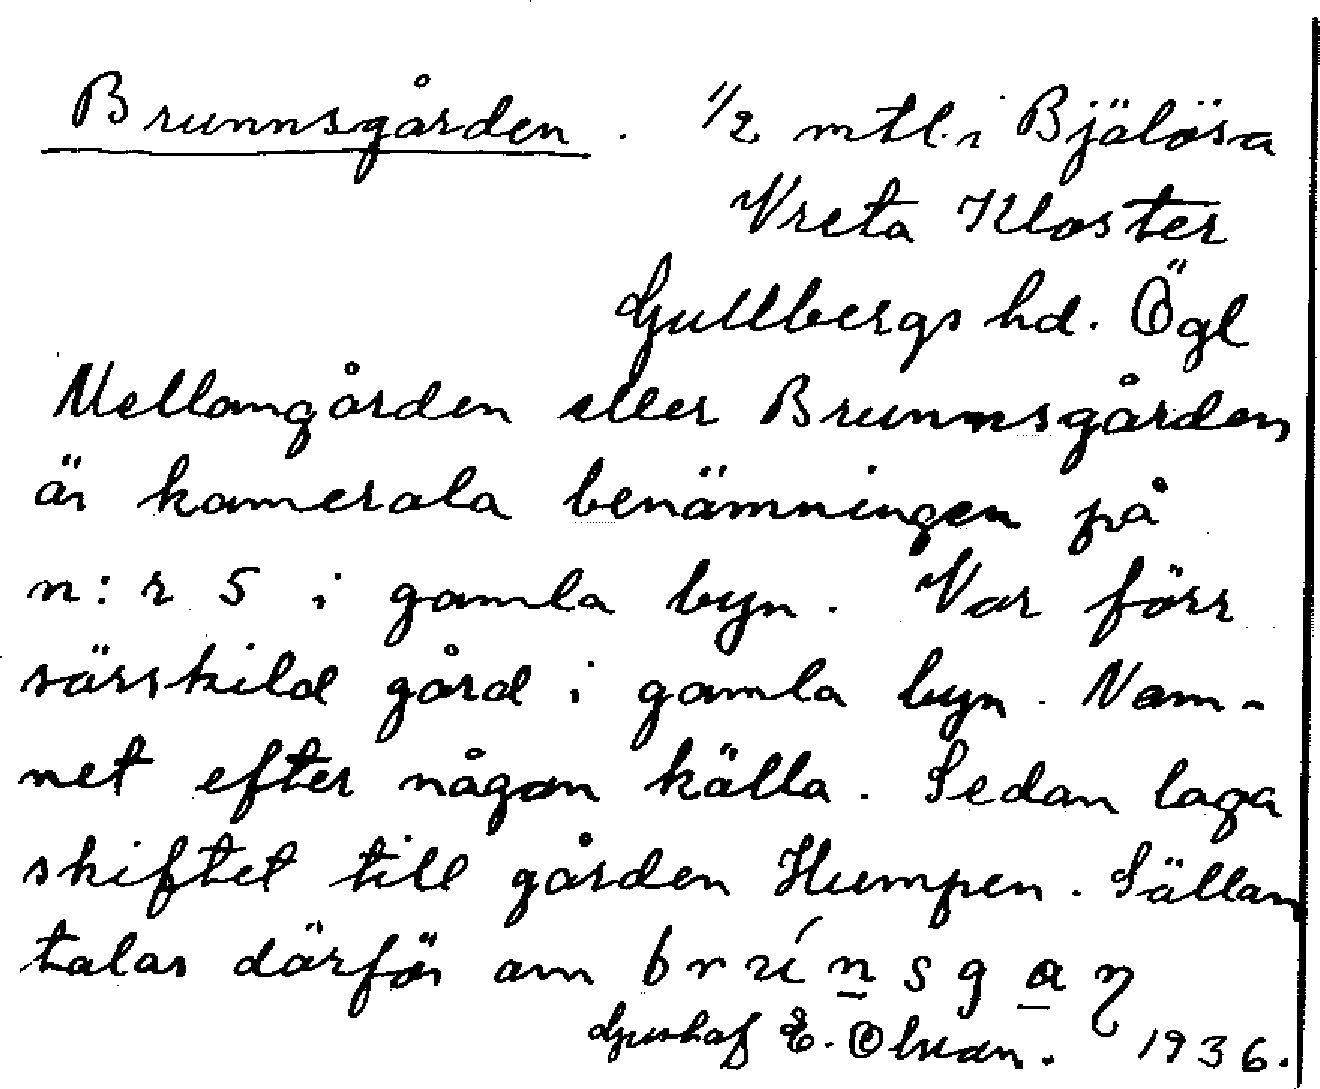 Brunnsgården. 1/2 mtl. i Bjälösa
Vreta Kloster
Gullbergs hd. Ögl
Mellomgården eller Brunnsgården
är kamerala benämningen på
n:r 5 i gamla byn. Var förr
särskild gård i gamla byn. Nam-
net efter någon källa. Sedan laga
skiftet till gården Humpen. Sällan
talas därför om
Gustaf E. 1936.